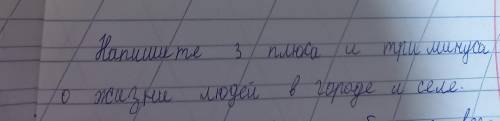 Напишите 3 плюса и три минуса
о жизни людей в городе и селе.